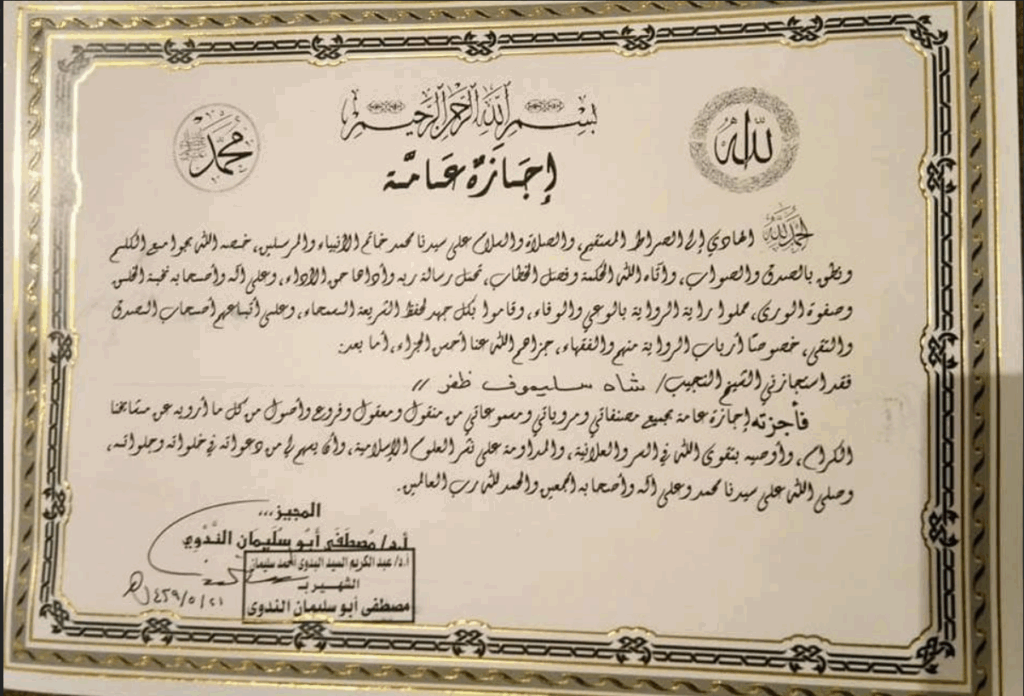 الله
محمد
بسم الله الرحمن الرحيم
إجَازَةٌ عَامَّة
الحمد لله الهادي إلى الصراط المستقيم، والصلاة والسلام على سيدنا محمد خاتم الأنبياء والمرسلين، خصه الله بجوامع الكلم
ونطق بالصدق والصواب، وآتاه الله الحكمة وفصل الخطاب، تحمل رسالة ربه وأداها حق الأداء، وعلى آله وأصحابه نخبة الخلق
وصفوة الورى، حملوا راية الرواية بالوعي والوفاء، وقاموا بكل جهد لحفظ الشريعة السمحاء، وعلى أتباعهم أصحاب الصدق
والتقى، خصوصًا أرباب الرواية منهم والفقهاء، جزاهم الله عنا أحسن الجزاء، أما بعد:
فقد استجازني الشيخ النجيب/ شاه سليموف ظفر //
فأجزته إجازة عامة بجميع مصنفاتي ومروياتي ومسموعاتي من منقول ومعقول وفروع وأصول من كل ما أرويه عن مشايخنا
الكرام، وأوصيه بتقوى الله في السر والعلانية، والمداومة على نشر العلوم الإسلامية، وأن يسهم لي من دعواته في خلواته وجلواته،
وصلى الله على سيدنا محمد وعلى آله وأصحابه أجمعين والحمد لله رب العالمين.
المجيز...
أ.د/ مُصطَفَى أَبُو سُلَيمَان النَّدْوِي
أ.د/ عبد الكريم السيد البدوى أحمد سليمان
الشهير بـ
مصطفى أبو سليمان الندوى
١٤٣٩/٥/٢١هـ